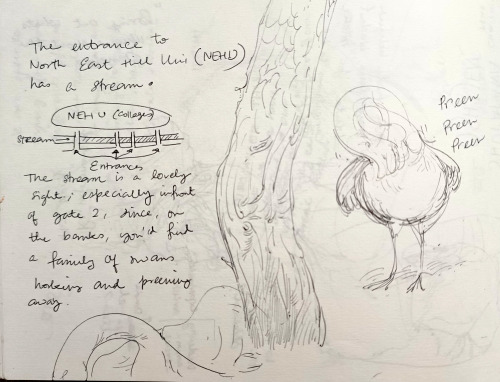 The entrance to
North East Hill Uni (NEHU)
has a stream.
NEHU (Colleges)
Stream
Entrances
The stream is a lovely
sight; especially infront
of gate 2, since, on
the banks, you'd find
a family of swans
honking and preening
away.
Preen
Preen
Preen